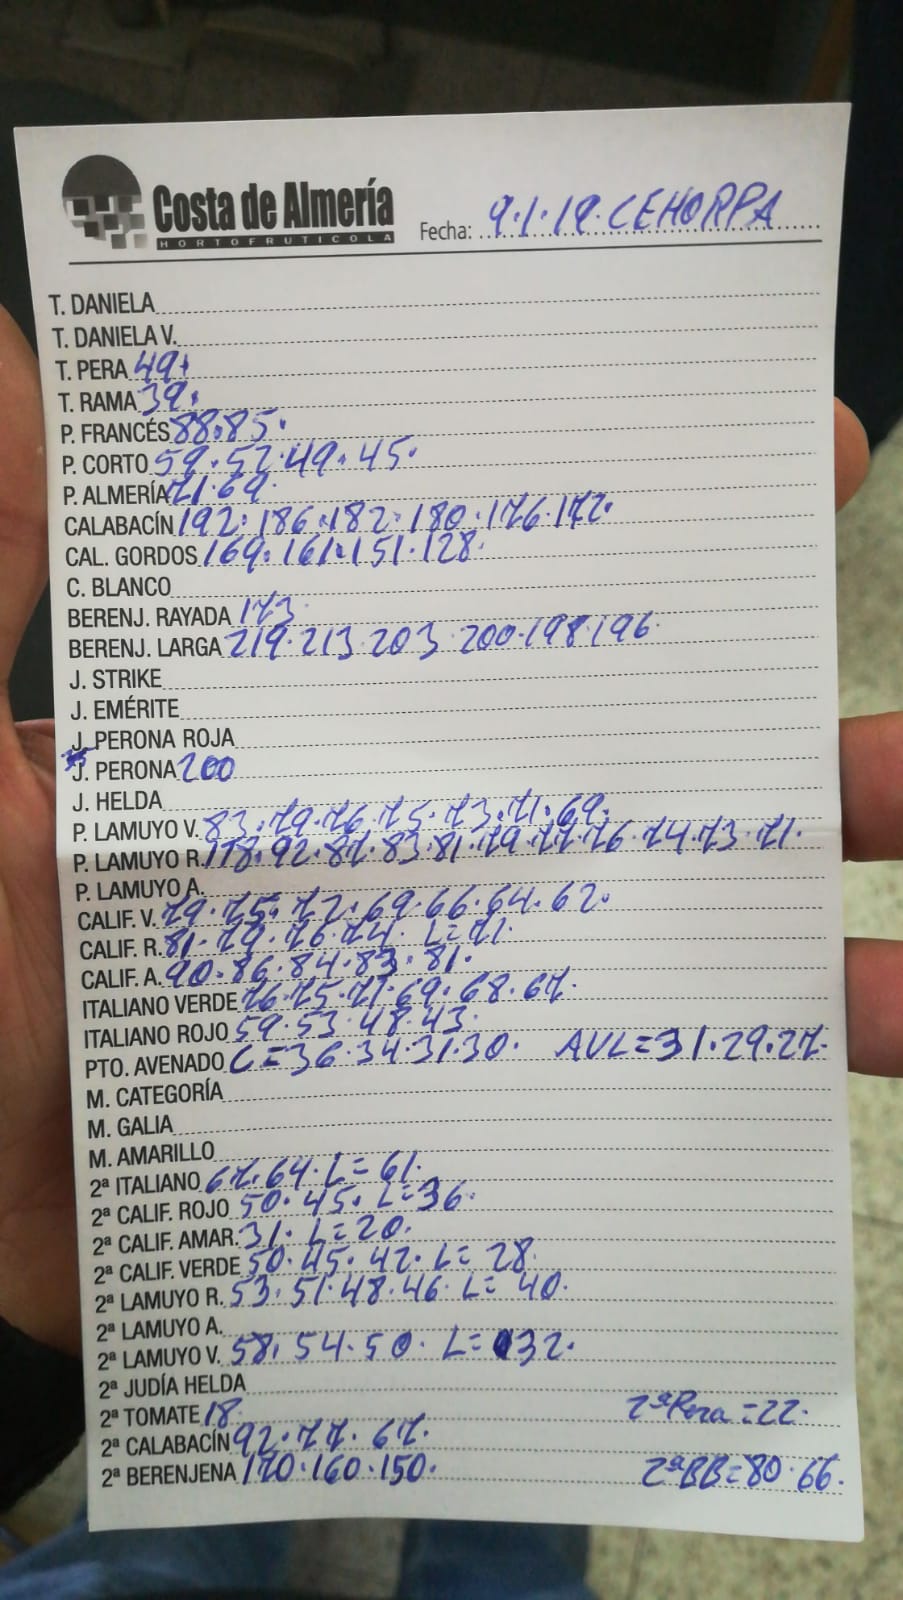 Costa de Almería
HORTOFRUTICOLA
Fecha: 9.1.19. CEHORPA
T. DANIELA
T. DANIELA V.
T. PERA 49.
T. RAMA 39.
P. FRANCÉS 88.85.
P. CORTO 59.52.49.45.
P. ALMERÍA 71.69.
CALABACÍN 192.186.182.180.176.172.
CAL. GORDOS 169.161.151.128.
C. BLANCO
BERENJ. RAYADA 173
BERENJ. LARGA 219.213.203 200.198.196
J. STRIKE
J. EMÉRITE
J. PERONA ROJA
J. PERONA 200
J. HELDA
P. LAMUYO V. 83.79.76.75.73.71.69.
P. LAMUYO R. 118.92.87.83.81.79.77.76.74.73.71.
P. LAMUYO A.
CALIF. V. 79.75.72.69.66.64.62.
CALIF. R. 81.79.76.74. L=71.
CALIF. A. 90.86.84.83.81.
ITALIANO VERDE 76.75.71.69.68.67.
ITALIANO ROJO 59.53.48.43.
PTO. AVENADO C=36.34.31.30. AVL=31.29.27.
M. CATEGORÍA
M. GALIA
M. AMARILLO
2ª ITALIANO 67.64. L=61.
2ª CALIF. ROJO 50.45. L=36.
2ª CALIF. AMAR. 31. L=20.
2ª CALIF. VERDE 50.45.42. L=28.
2ª LAMUYO R. 53.51.48.46. L=40.
2ª LAMUYO A.
2ª LAMUYO V. 58.54.50. L=32.
2ª JUDÍA HELDA
2ª TOMATE 18. 2ªPera=22.
2ª CALABACÍN 92.77.67.
2ª BERENJENA 170.160.150. 2ªBB=80.66.